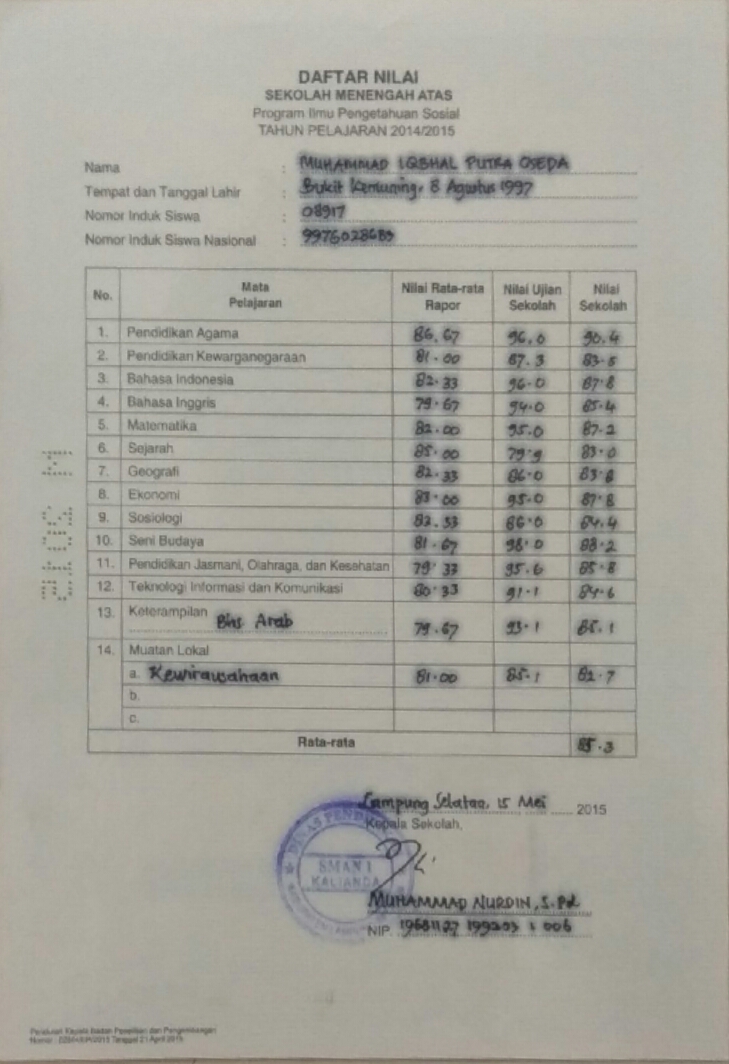 DAFTAR NILAI
SEKOLAH MENENGAH ATAS
Program Ilmu Pengetahuan Sosial
TAHUN PELAJARAN 2014/2015
Nama : MUHAMMAD IQBHAL PUTRA OSEDA
Tempat dan Tanggal Lahir : Bukit Kemuning, 8 Agustus 1997
Nomor Induk Siswa : 08917
Nomor Induk Siswa Nasional :
No. Mata Pelajaran Nilai Rata-rata Rapor Nilai Ujian Sekolah Nilai Sekolah
1. Pendidikan Agama 86.67 96.0 90.4
2. Pendidikan Kewarganegaraan 81.00 87.3 83.5
3. Bahasa Indonesia 82.33 96.0 87.8
4. Bahasa Inggris 79.67 94.0 85.4
5. Matematika 82.00 95.0 87.2
6. Sejarah 85.00 79.9 83.0
7. Geografi 82.33 86.0 83.8
8. Ekonomi 83.00 95.0 87.8
9. Sosiologi 82.33 86.0 84.4
10. Seni Budaya 81.67 98.0 88.2
11. Pendidikan Jasmani, Olahraga, dan Kesehatan 79.33 95.6 85.8
12. Teknologi Informasi dan Komunikasi 80.33 91.1 84.6
13. Keterampilan Bhs Arab 79.67 93.1 85.1
14. Muatan Lokal
a. Kewirausahaan 81.00 85.1 82.7
b.
c.
Rata-rata 85.3
Lampung Selatan, 15 Mei 2015
Kepala Sekolah,
DINAS
SMAN 1
KALIANDA
MUHAMMAD NURDIN, S.Pd
NIP. 19681127 199203 1 006
Peraturan Kepala Badan Penelitian dan Pengembangan
Nomor : Tanggal 21 April 2015